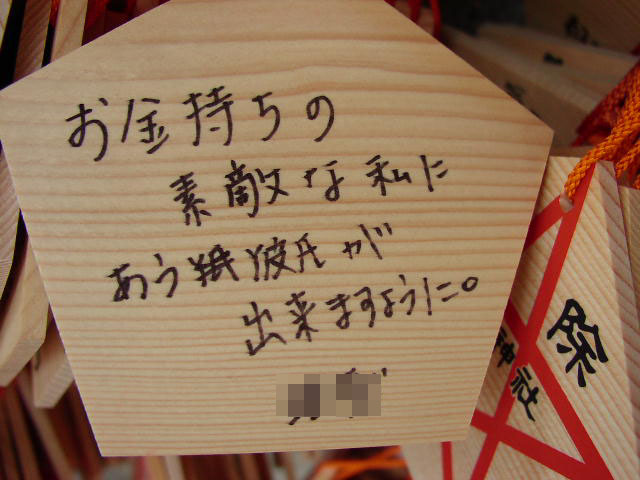 お金持ちの
素敵な私に
あう彼氏が
出来ますように。
除
神社